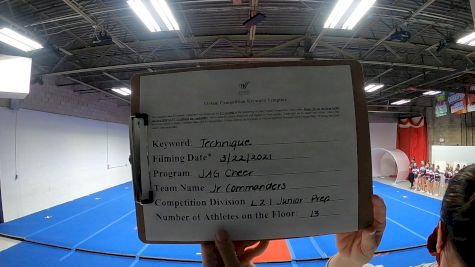 Virtual Competition Keyword Template
Keyword Technique
Filming Date* 3/22/2021
Program JAG Cheer
Team Name Jr Commanders
Competition Division L2 | Junior Prep
Number of Athletes on the Floor 13